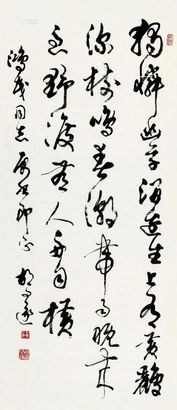 獨憐幽草澗邊生上有黃鸝
深樹鳴春潮帶雨晚來
急野渡無人舟自橫
同志屬書即正 胡問遂